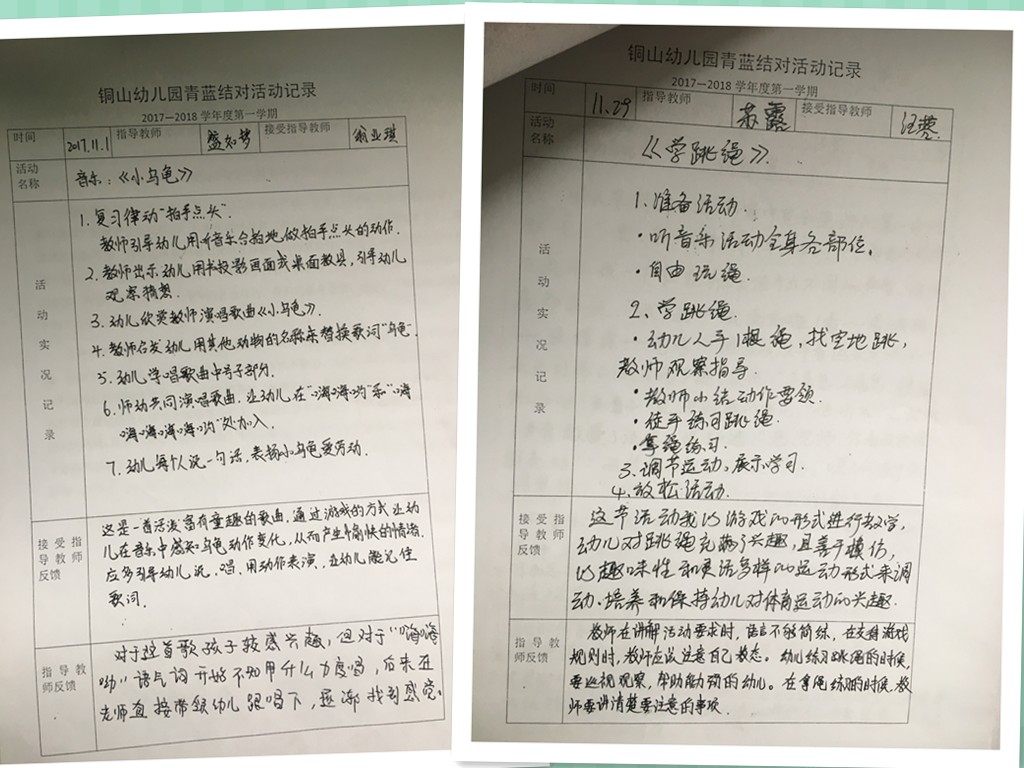 铜山幼儿园青蓝结对活动记录
2017—2018 学年度第一学期
时间 2017.11.1 指导教师 盛知梦 接受指导教师 翁业琪
活动名称 音乐:《小乌龟》
活动实况记录
1. 复习律动“拍手点头”.
教师引导幼儿用听音乐合拍地做拍手点头的动作.
2. 教师出示幼儿用书投影画面或桌面教具,引导幼儿
观察猜想.
3. 幼儿欣赏教师演唱歌曲《小乌龟》.
4. 教师启发幼儿用其他动物的名称来替换歌词“乌龟”.
5. 幼儿学唱歌曲中号子部分.
6. 师幼共同演唱歌曲.让幼儿在“嗨嗨哟”和“嗨
嗨嗨嗨嗨哟”处加入.
7. 幼儿每个人说一句话,表扬小乌龟爱劳动.
接受指导教师反馈
这是一首活泼富有童趣的歌曲,通过游戏的方式让幼
儿在音乐中感知乌龟动作变化,从而产生愉快的情绪.
应多引导幼儿说、唱、用动作表演,让幼儿能记住
歌词.
指导教师反馈
对于这首歌孩子较感兴趣,但对于“嗨嗨
哟”语气词开始不知用什么力度唱,后来在
老师直接带领幼儿跟唱下,逐渐找到感觉.
铜山幼儿园青蓝结对活动记录
2017—2018 学年度第一学期
时间 11.29 指导教师 苏露 接受指导教师 汪蓉
活动名称 《学跳绳》.
活动实况记录
1. 准备活动.
·听音乐活动全身各部位.
·自由玩绳.
2. 学跳绳.
·幼儿人手1根绳,找空地跳,
教师观察指导.
·教师小结动作要领.
·徒手练习跳绳.
·拿绳练习.
3. 调节运动、展示学习.
4. 放松活动.
接受指导教师反馈
这节活动我以游戏的形式进行教学,
幼儿对跳绳充满了兴趣,且善于模仿,
以趣味性和灵活多样的运动形式来调
动、培养和保持幼儿对体育运动的兴趣.
指导教师反馈
教师在讲解活动要求时,语言不够简练,在支持游戏
规则时,教师应该注意自己教态。幼儿练习跳绳的时候,
要巡视观察,帮助能力弱的幼儿。在拿绳练习的时候,教
师要讲清楚要注意的事项.